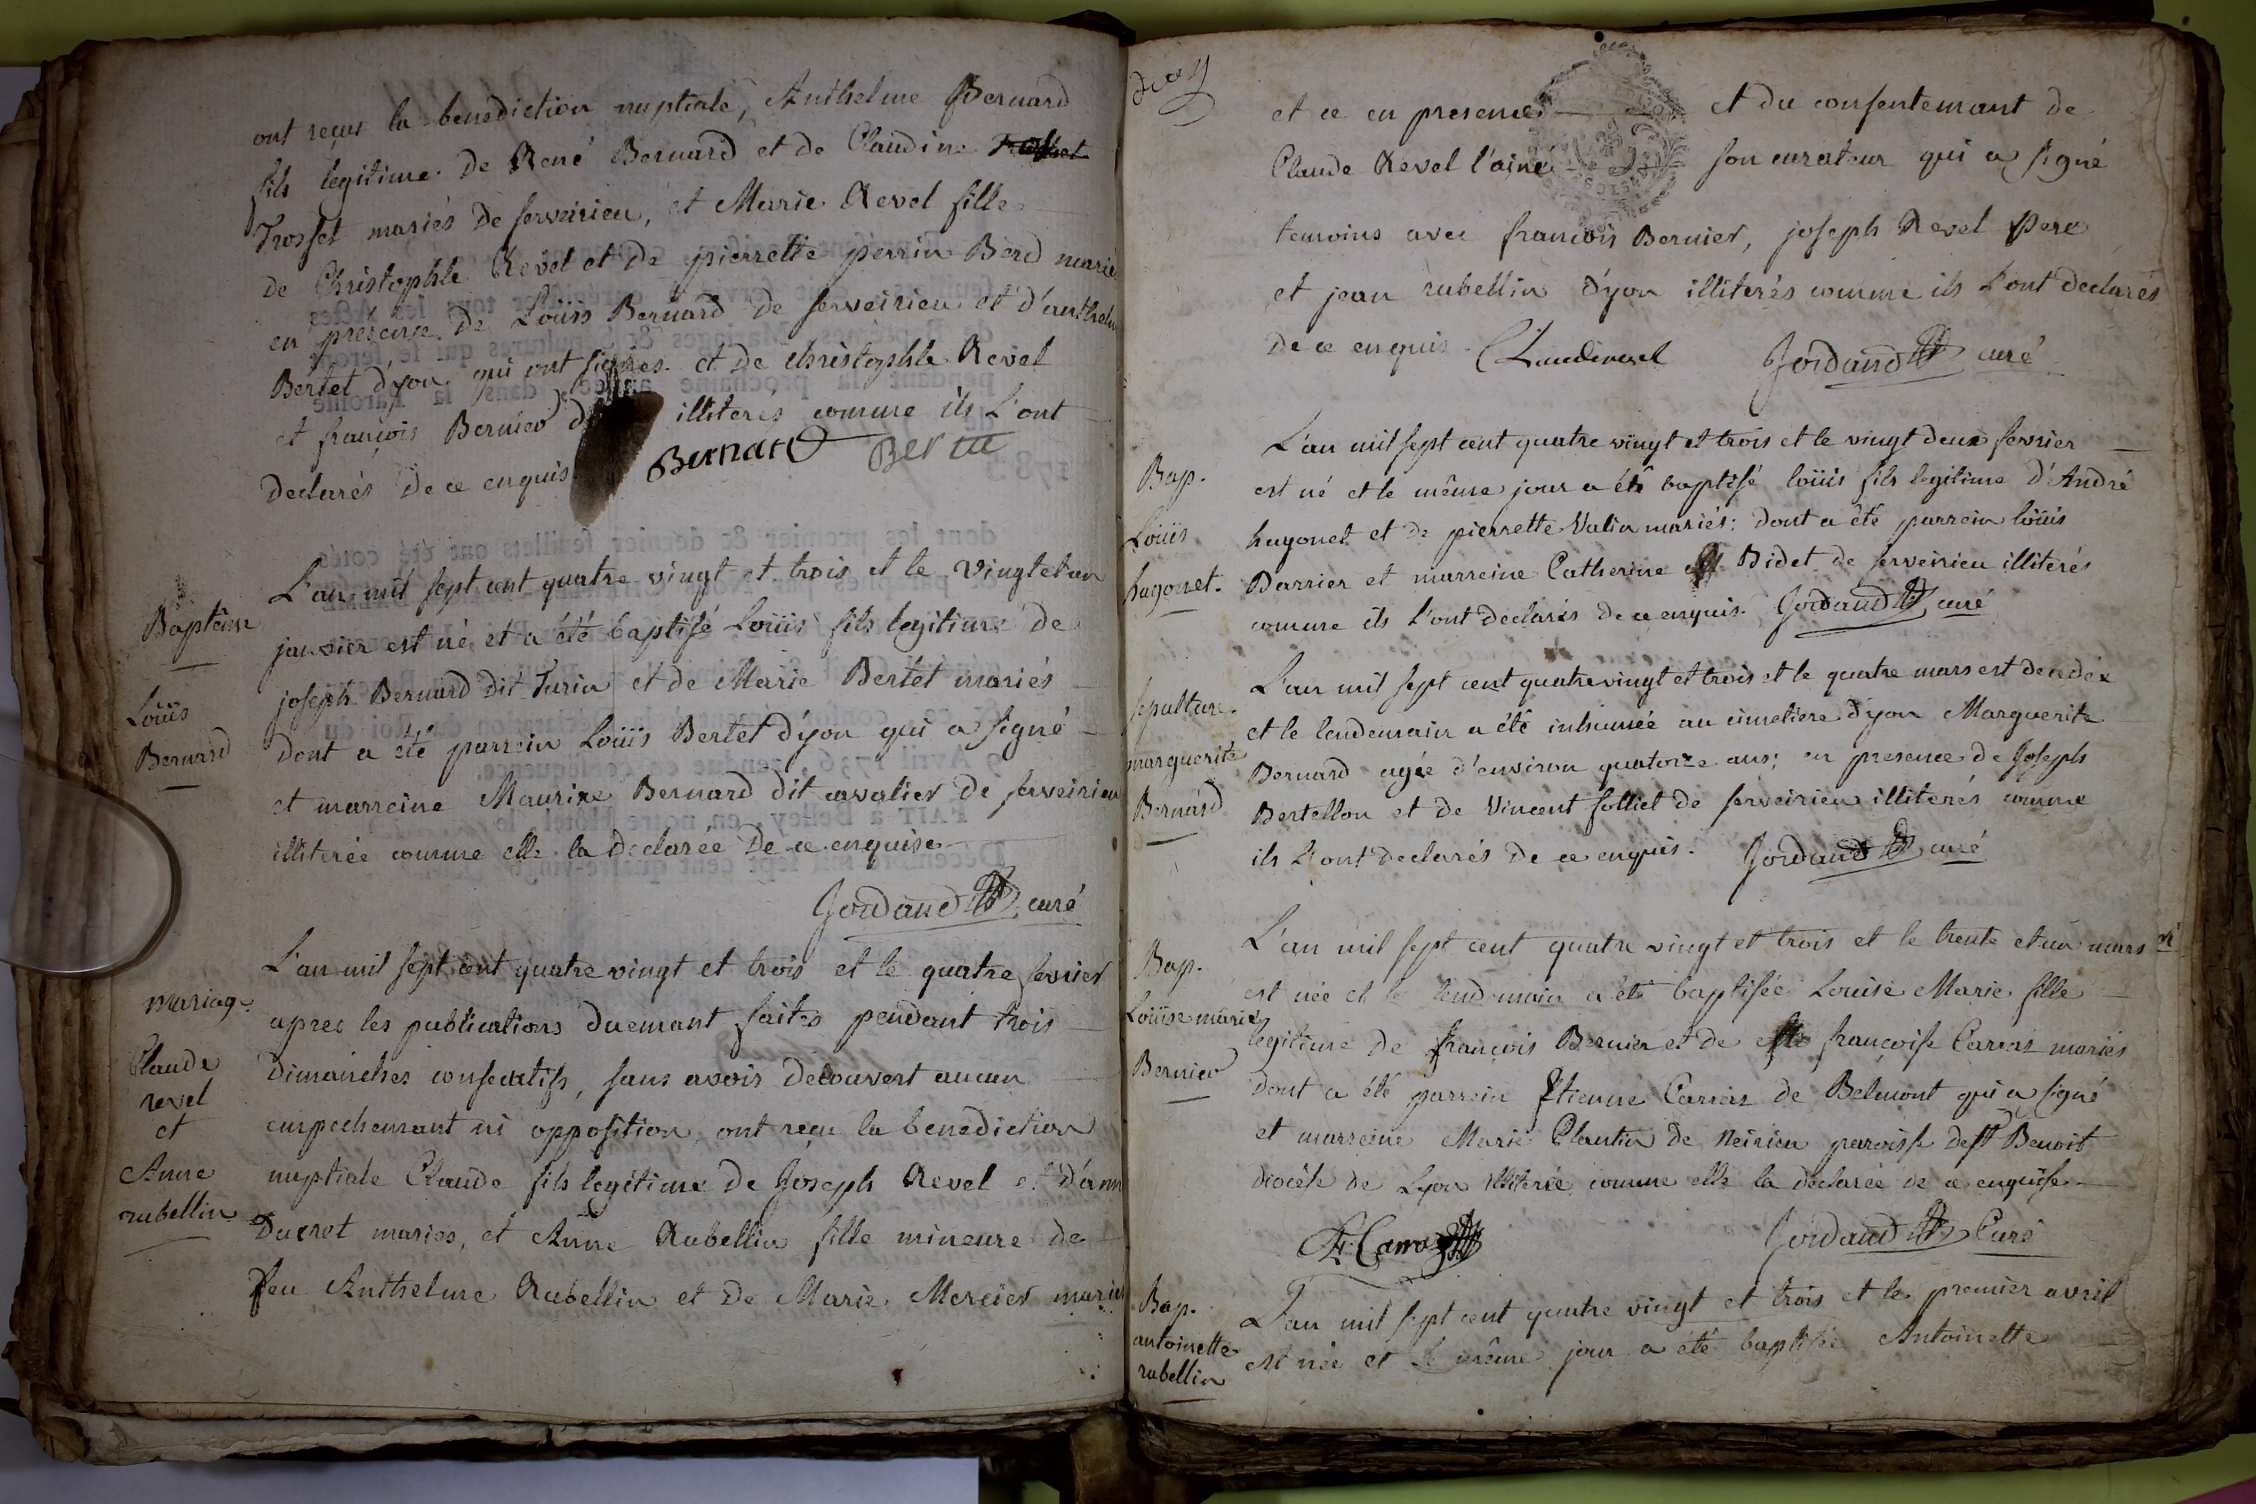 ont reçus la benediction nuptiale, Anthelme Bernard
fils legitime de René Bernard et de Claudine
Trosset mariés de serveirieu, et Marie Revel fille
de Christophle Revel et de pierrette perrin Berd mariés
en présence de Loüis Bernard de serveirieu et d'anthelme
Bertet d'yon qui ont signés et de christophle Revel
et françois Bernier illiterés comme ils L'ont
declarés de ce enquis. Bernard Bertet
Baptême
Loüis
Bernard
L'an mil sept cent quatre vingt et trois et le vingt et un
janvier est né et a été baptisé Loüis fils legitime de
joseph Bernard dit Turin et de Marie Bertet mariés
dont a été parrein Loüis Bertet d'yon qui a signé
et marreine Maurixe Bernard dit cavalier de serveirieu
illiterée comme elle la declarée de ce enquise
Jordand curé
mariage
Claude
revel
et
Anne
rubellin
L'an mil sept cent quatre vingt et trois et le quatre fevrier
apres les publications duemant faites pendant trois
dimanches consecutifs, sans avoir decouvert aucun
empechemant ni opposition, ont reçu la benediction
nuptiale Claude fils legitime de Joseph Revel et d'anne
Ducret mariés, et Anne Rubellin fille mineure de
feu Anthelme Rubellin et de Marie Mercier mariés
et ce en presence et du consentemant de
Claude Revel l'ainé son curateur qui a signé
temoins avec francois Bernier, joseph Revel pere
et jean rubellin d'yon illiterés comme ils L'ont declarés
de ce enquis. Claude revel Jordand curé
Bap.
Loüis
hugonet.
L'an mil sept cent quatre vingt et trois et le vingt deux fevrier
est né et le même jour a été baptisé loüis fils legitime d'André
hugonet et de pierrette Vatin mariés: dont a été parrein loüis
Darrier et marreine Catherine Bidet de serveirieu illiterés
comme ils l'ont declarés de ce enquis. Jordand curé
sepulture.
marguerite
Bernard
L'an mil sept cent quatre vingt et trois et le quatre mars est decedée
et le lendemain a été inhumée au cimetiere d'yon Marguerite
Bernard agée d'environ quatorze ans; en presence de Joseph
Bertellon et de Vincent folliet de serveirieu illiterés comme
ils L'ont declarés de ce enquis. Jordand curé
Bap.
Loüise marie
Bernier
L'an mil sept cent quatre vingt et trois et le trente et un mars
est née et le lendemain a été baptisée Louise Marie fille
legitime de françois Bernier et de françoise Carras mariés
dont a été parrein Etienne Carras de Belmont qui a signé
et marreine Marie Plantin de Neirieu paroisse de st Benoit
diocése de Lyon illiterée comme elle la declarée de ce enquise
Carras Jordand Curé
Bap.
antoinette
rubellin
L'an mil sept cent quatre vingt et trois et le premier avril
est née et le même jour a été baptisée Antoinette